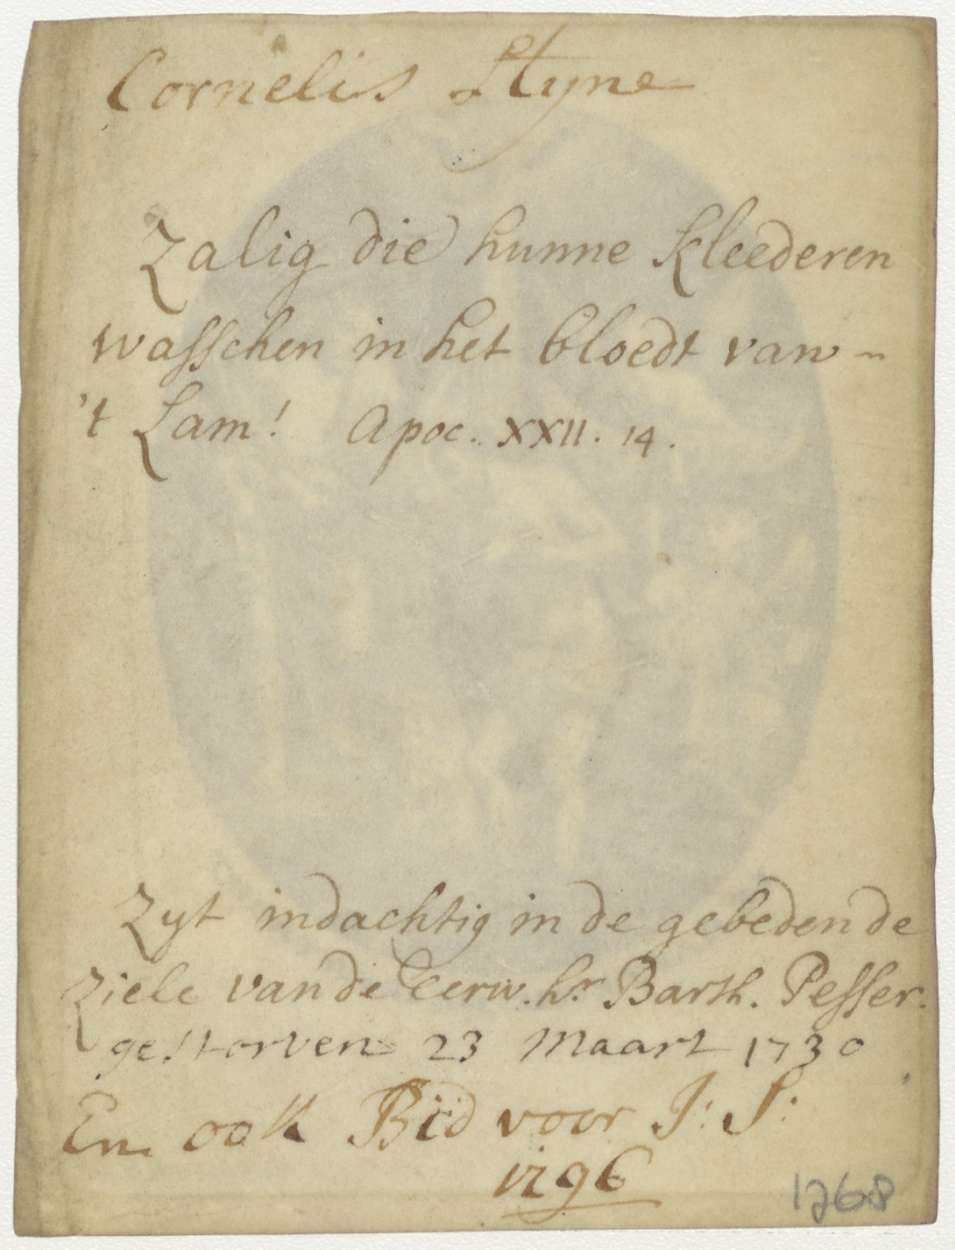 Cornelis Styne
Zalig die hunne kleederen
wasschen in het bloedt van
't Lam! Apoc. XXII. 14.
Zyt indachtig in de gebeden de
Ziele van de Eerw. hr Barth. Pesser.
gestorven 23 Maart 1730
En ook Bid voor J: S:
1796
1768